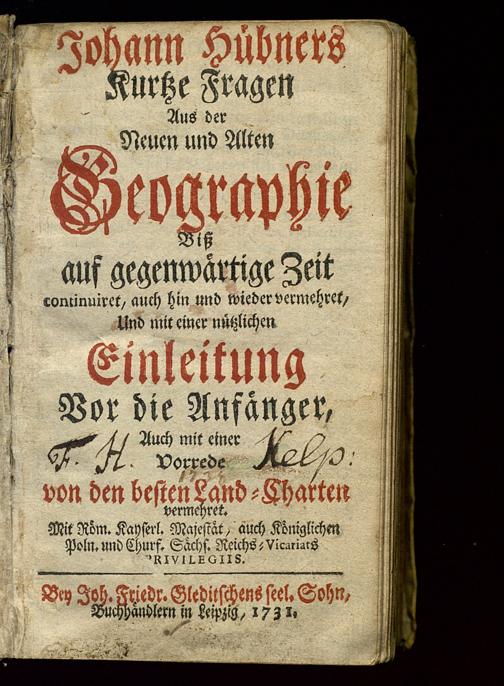 Johann Hübners
Kurtze Fragen
Aus der
Neuen und Alten
Geographie
Biß
auf gegenwärtige Zeit
continuiret, auch hin und wieder vermehret,
Und mit einer nützlichen
Einleitung
Vor die Anfänger,
Auch mit einer
F. H. Vorrede Kelp:
von den besten Land-Charten
vermehret.
Mit Röm. Kayserl. Majestät, auch Königlichen
Poln. und Churf. Sächs. Reichs-Vicariats
PRIVILEGIIS.
Bey Joh. Friedr. Gleditschens seel. Sohn,
Buchhändlern in Leipzig, 1731.